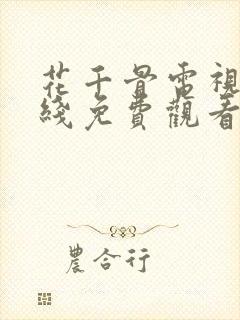 花千骨電視
綫免費觀看
農合行